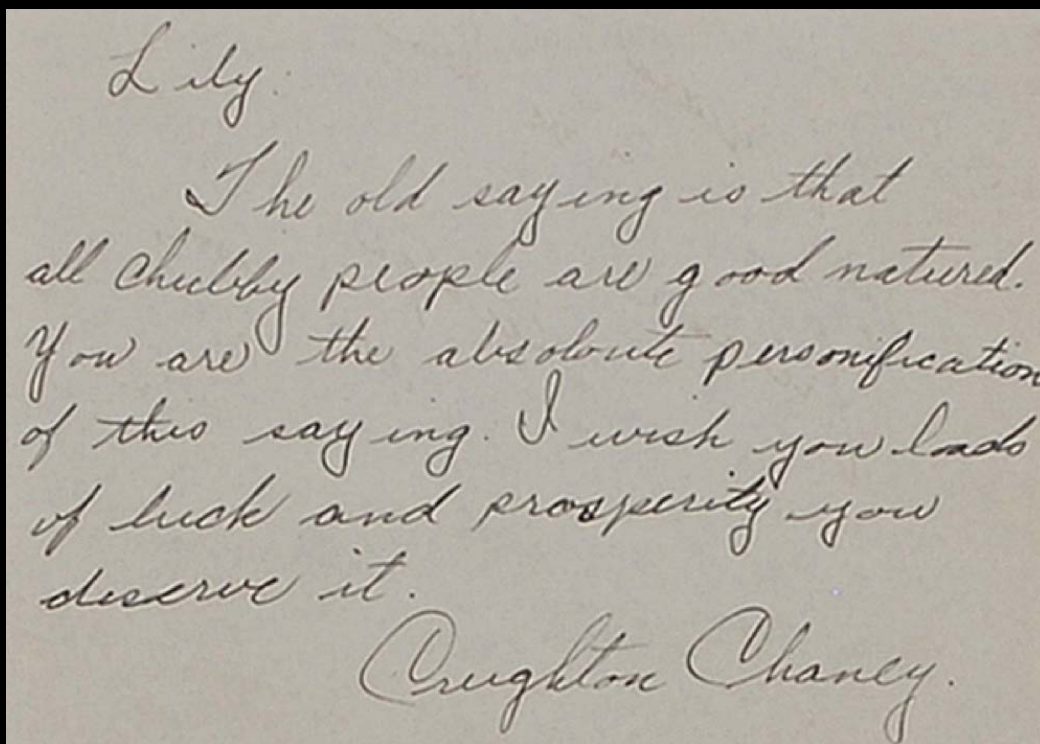 Lily.
The old saying is that
all chubby people are good natured.
You are the absolute personification
of this saying. I wish you loads
of luck and prosperity you
deserve it.
Creighton Chaney.